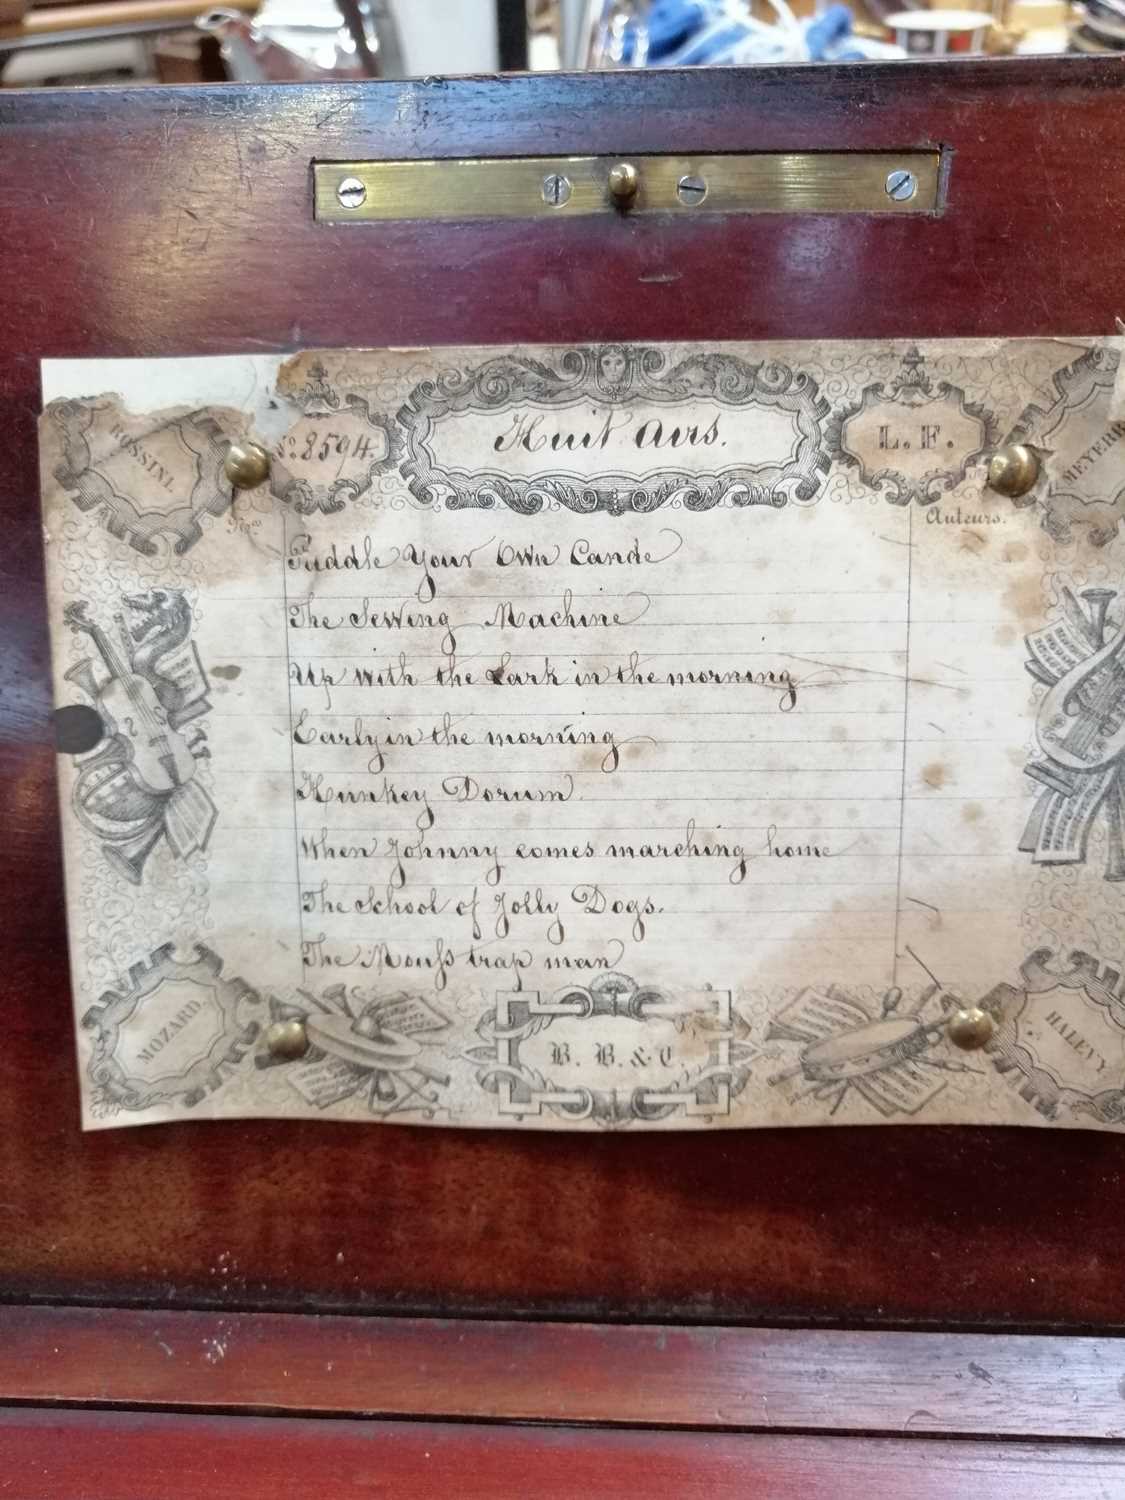 No. 8594.
Huit Airs.
L. F.
ROSSINI.
Nos.
Auteurs.
Puddle Your Own Canoe
The Sewing Machine
Up with the Lark in the morning
Early in the morning
Hunkey Dorum
When Johnny comes marching home
The School of Jolly Dogs.
The Mouss trap man
MOZARD.
B. B. & C.
HALEVY